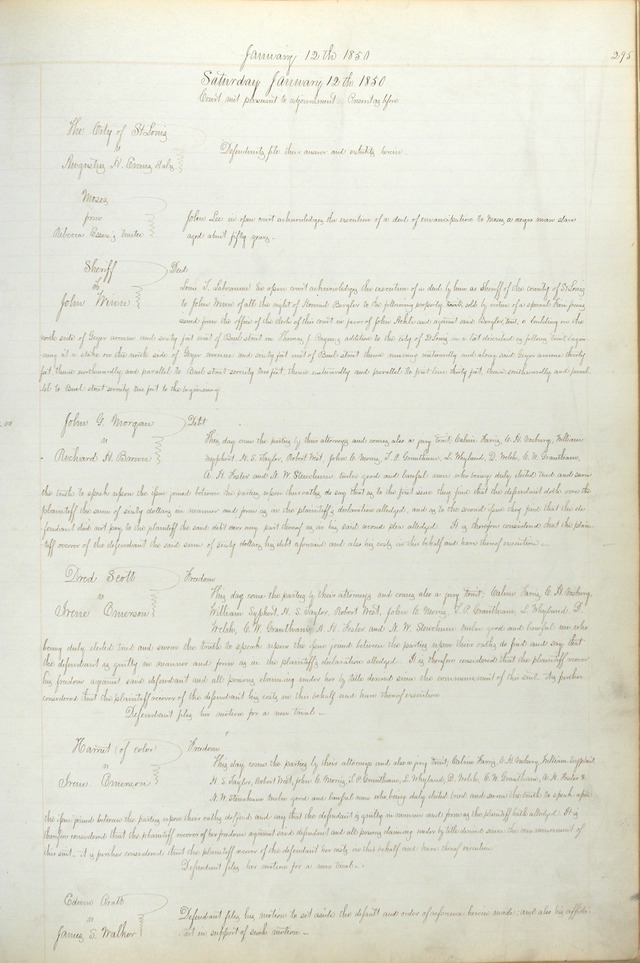 January 12th 1850
295
Saturday January 12th 1850
Court met pursuant to adjournment Present as before
The City of St. Louis
vs
Augustus H. Evans et als
Defendants file their answer and herein.
Moses
from
Rebecca Trustee
John Lee in open court acknowledges the execution of a deed of emancipation to Moses a negro man slave
aged about fifty years.
Sheriff
to
John
Deed
Louis T. Labeaume in open court acknowledges the execution of a deed by him as Sheriff of the county of St Louis
to John of all the right of to the following property sold by virtue of a special
issued from the office of the clerk of this court in favor of John and against said a building on the
north side of Geyer avenue and sixty feet west of Buel street in Thomas F. addition to the City of St Louis in a lot described as follows Begin
ning at a stake on the north side of Geyer avenue and sixty feet west of Buel street thence running westwardly and along said Geyer avenue thirty
feet, thence northwardly and parallel to Buel street seventy feet, thence eastwardly and parallel to first line thirty feet, thence southwardly and paral
lel to Buel street seventy feet to the beginning
John G. Morgan
vs
Richard H. Barron
Debt
This day come the parties by their attorneys and comes also a jury towit, Calvin Farris, William
Syphert, H. S. Taylor, Robert West, John C. Morris, T. P. Grantham, L. Whyland, D. Welch, C. W. Grantham,
A. H. Foster and N. W. Stewkens twelve good and lawful men who being duly elected tried and sworn
the truth to speak upon the issue joined between the parties upon their oaths do say that as to the first issue they find that the defendant doth owe the
plaintiff the sum of sixty dollars in manner and form as in the plaintiff's declaration alledged, and as to the second issue they find that the de
fendant did not pay to the plaintiff the said debt nor any part thereof as in his said second plea alledged. It is therefore considered that the plain
tiff recover of the defendant the said sum of sixty dollars his debt aforesaid and also his costs in this behalf and have thereof execution.
Dred Scott
vs
Irene Emerson
Freedom
This day come the parties by their attorneys and comes also a jury towit, Calvin Farris,
William Syphert, H. S. Taylor, Robert West, John C. Morris, T. P. Grantham, L. Whyland, D.
Welch, C. W. Grantham, A. H. Foster and N. W. Stewkens twelve good and lawful men who
being duly elected tried and sworn the truth to speak upon the issue joined between the parties upon their oaths do find and say that
the defendant is guilty in manner and form as in the plaintiff's declaration alledged. It is therefore considered that the plaintiff recover
his freedom against said defendant and all persons claiming under her by title derived since the commencement of this suit. It is further
considered that the plaintiff recover of the defendant his costs in this behalf and have thereof execution
Defendant files her motion for a new trial.
Harriet (of color)
vs
Irene Emerson
Freedom
This day come the parties by their attorneys and also a jury towit, Calvin Farris, William Syphert
H. S. Taylor, Robert West, John C. Morris, T. P. Grantham, L. Whyland, D. Welch, C. W. Grantham, A. H. Foster &
N. W. Stewkens twelve good and lawful men who being duly elected tried and sworn the truth to speak upon
the issue joined between the parties upon their oaths do find and say that the defendant is guilty in manner and form as the plaintiff hath alledged. It is
therefore considered that the plaintiff recover of her freedom against said defendant and all persons claiming under by title derived since the commencement of
this suit. It is further considered that the plaintiff recover of the defendant her costs in this behalf and have thereof execution
Defendant files her motion for a new trial.
Edwin
vs
James S. Walker
Defendant files his motion to set aside the default and order of reference herein made: and also his affida
vit in support of such motion.